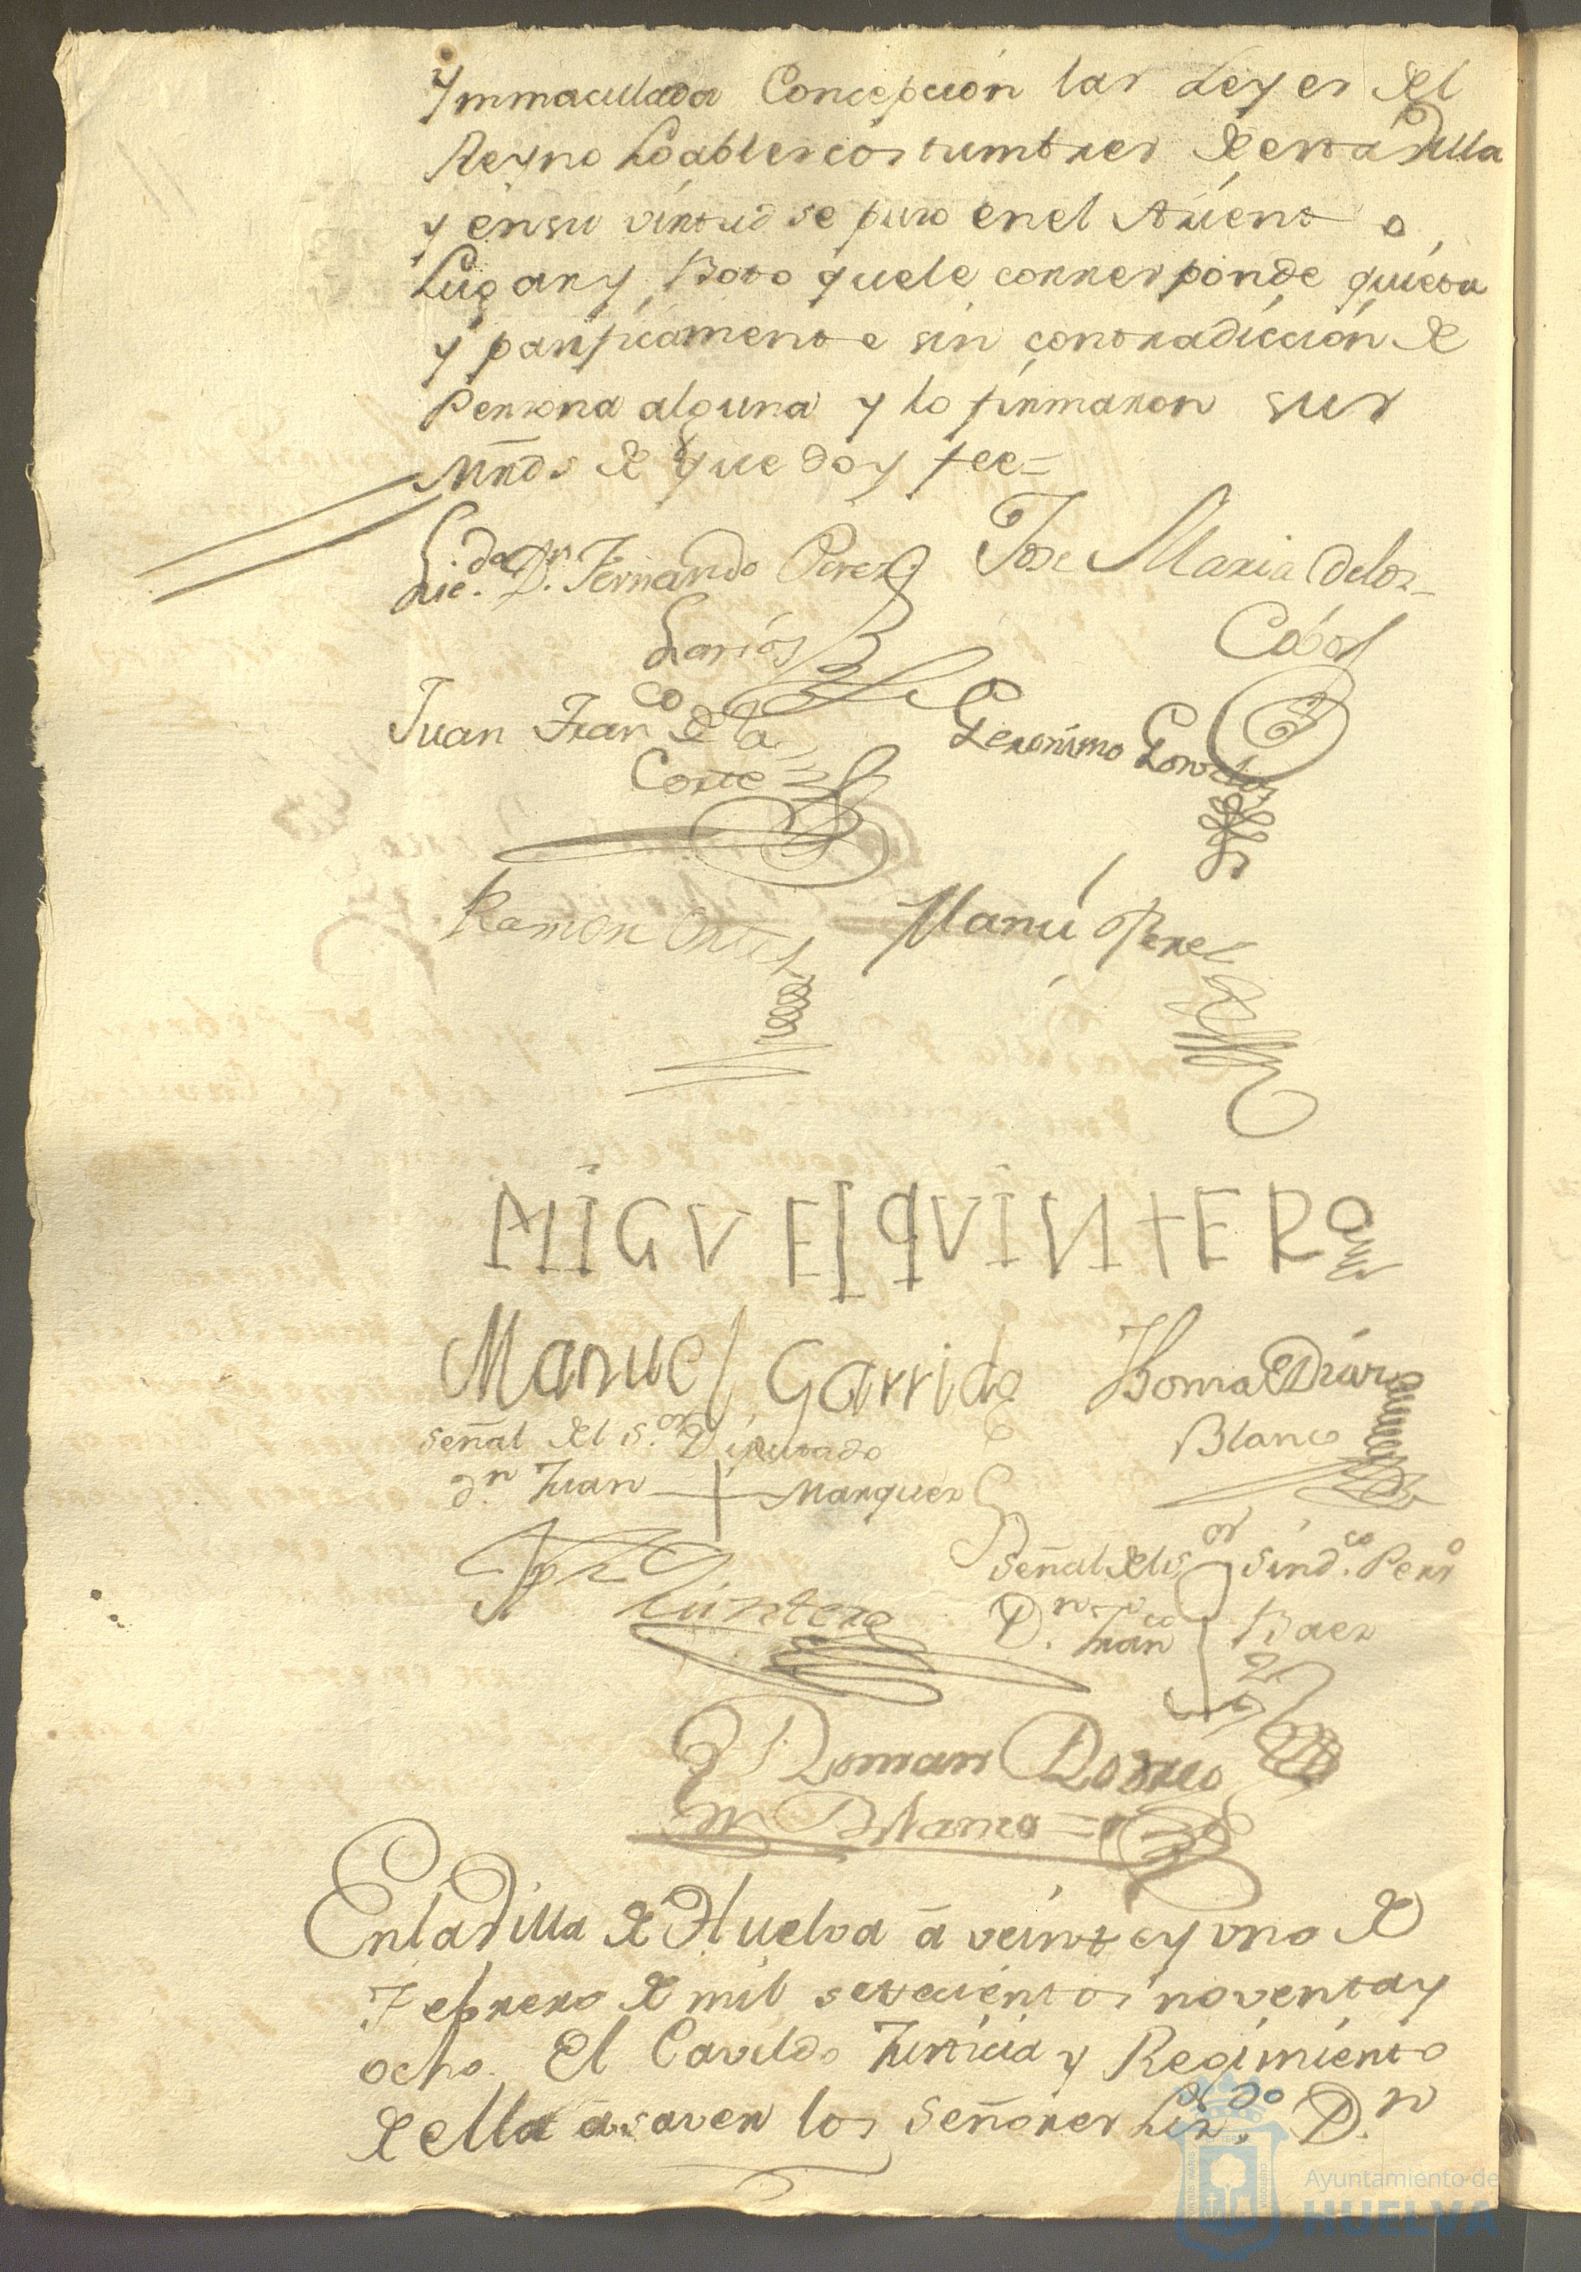 Ymmaculada Concepción las Leyes del
Reyno Loables costumbres de esta Villa
y en su virtud se puso en el Asiento
Lugar y Boto que le corresponde quieta
y pasificamente sin contradiccion de
Persona alguna y lo firmaron sus
Mrds de que doy fee=
Lic.do Dn. Fernando Perez
Larios
Jose Maria delos
Cobos
Juan Franco de la
Corte
Geronimo
Ramon Ortiz
Manú Perez
MIGVEL QVINTERO
Manuel Garrido
Thomas Diaz
Blanco
señal del S.or Diputado
dn. Juan Marquez
Quintero
Señal del S.or Sind.co Pers.o
Dn. Franco Baez
Roman
Blanco=
En la Villa de Huelva á veinte y uno de
Febrero de mil setecientos noventa y
ocho. El Cavildo Justicia y Regimiento
de ella á saver los Señores Liz.do Dn
Ayuntamiento de
HUELVA